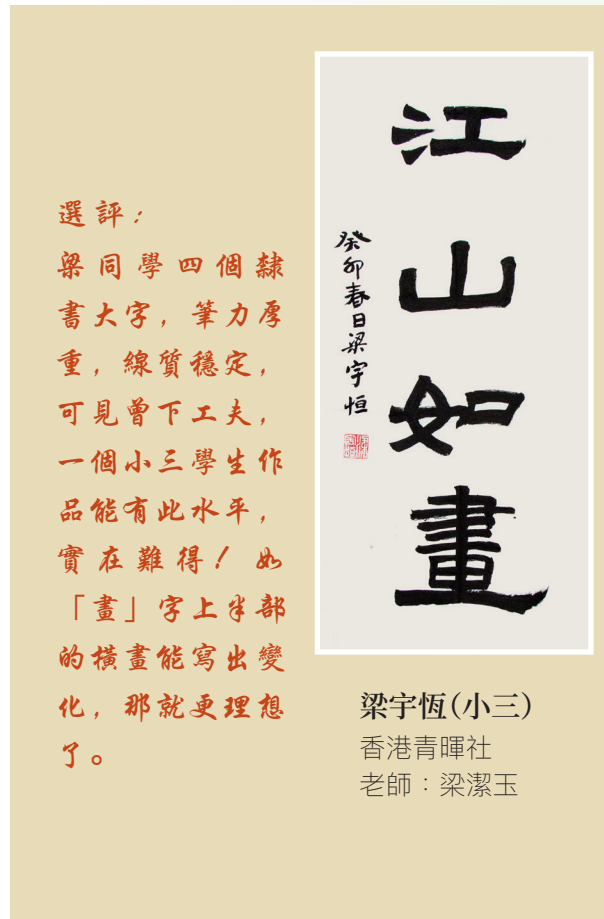 選評：
梁同學四個隸
書大字，筆力厚
重，線質穩定，
可見曾下工夫，
一個小三學生作
品能有此水平，
實在難得！如
「畫」字上半部
的橫畫能寫出變
化，那就更理想
了。
江山如畫
癸卯春日梁宇恒
梁宇恆（小三）
香港青暉社
老師：梁潔玉